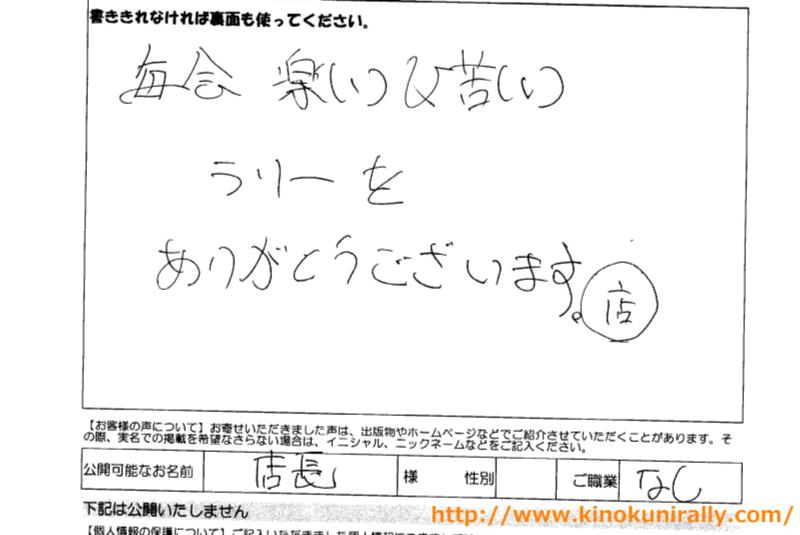 書ききれなければ裏面も使ってください。
毎会 楽しい&苦しい
ラリーを
ありがとうございます。店
【お客様の声について】お寄せいただきました声は、出版物やホームページなどでご紹介させていただくことがあります。そ
の際、実名での掲載を希望なさらない場合は、イニシャル、ニックネームなどをご記入ください。
公開可能なお名前 店長 様 性別 ご職業 なし
下記は公開いたしません
http://www.kinokunirally.com/